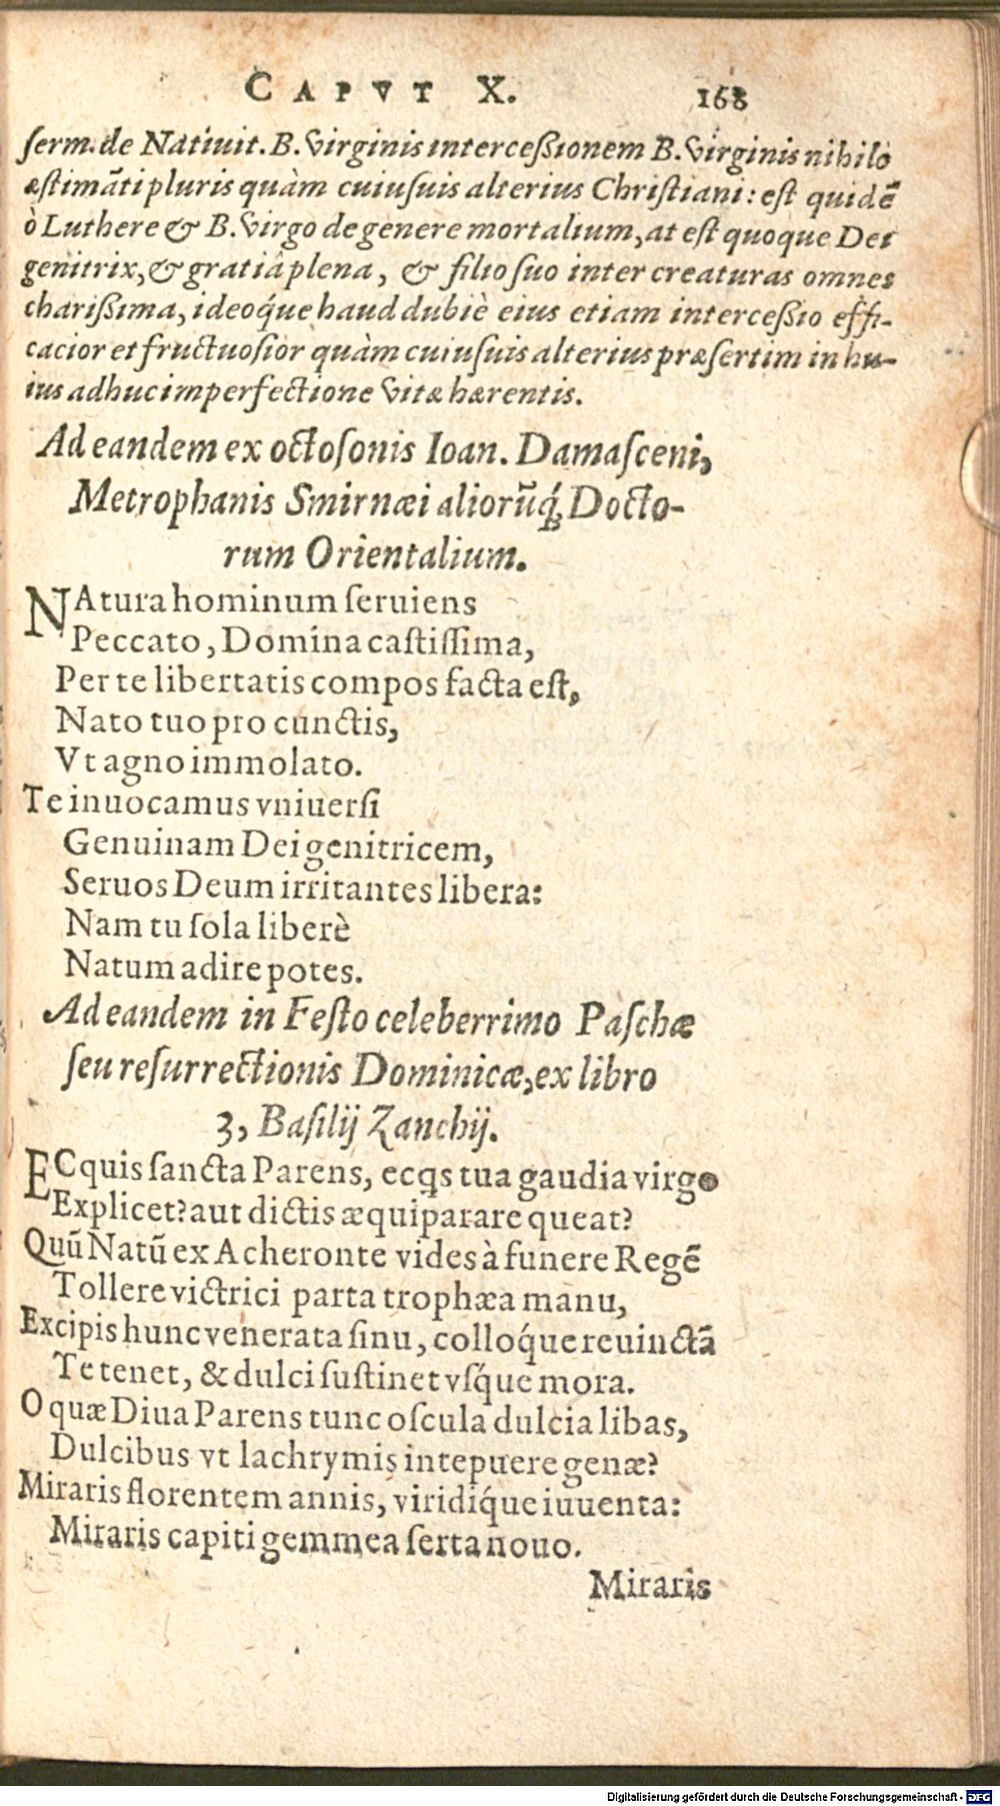 CAPVT X. 168
ſerm. de Natiuit. B. Virginis interceßionem B. Virginis nihilo
æstimāti pluris quàm cuiuſuis alterius Chriſtiani: eſt quidē
ò Luthere & B. Virgo de genere mortalium, at eſt quoque Dei
genitrix, & gratiâ plena, & filio ſuo inter creaturas omnes
charißima, ideoq́ue haud dubiè eius etiam interceßio effi-
cacior et fructuoſior quàm cuiuſuis alterius præſertim in hu-
ius adhuc imperfectione vitæ hærentis.
Ad eandem ex octoſonis Ioan. Damaſceni,
Metrophanis Smirnæi aliorūq́; Docto-
rum Orientalium.
NAtura hominum ſeruiens
Peccato, Domina caſtiſſima,
Per te libertatis compos facta eſt,
Nato tuo pro cunctis,
Vt agno immolato.
Te inuocamus vniuerſi
Genuinam Dei genitricem,
Seruos Deum irritantes libera:
Nam tu ſola liberè
Natum adire potes.
Ad eandem in Feſto celeberrimo Paſchæ
ſeu reſurrectionis Dominicæ, ex libro
3, Baſilij Zanchij.
ECquis ſancta Parens, ecqs tua gaudia virgo
Explicet? aut dictis æquiparare queat?
Quū Natū ex Acheronte vides à funere Regē
Tollere victrici parta trophæa manu,
Excipis hunc venerata ſinu, colloq́ue reuinctā
Te tenet, & dulci ſuſtinet vſq́ue mora.
O quæ Diua Parens tunc oſcula dulcia libas,
Dulcibus vt lachrymis intepuere genæ?
Miraris florentem annis, viridiq́ue iuuenta:
Miraris capiti gemmea ſerta nouo.
Miraris
Digitalisierung gefördert durch die Deutsche Forschungsgemeinschaft - DFG